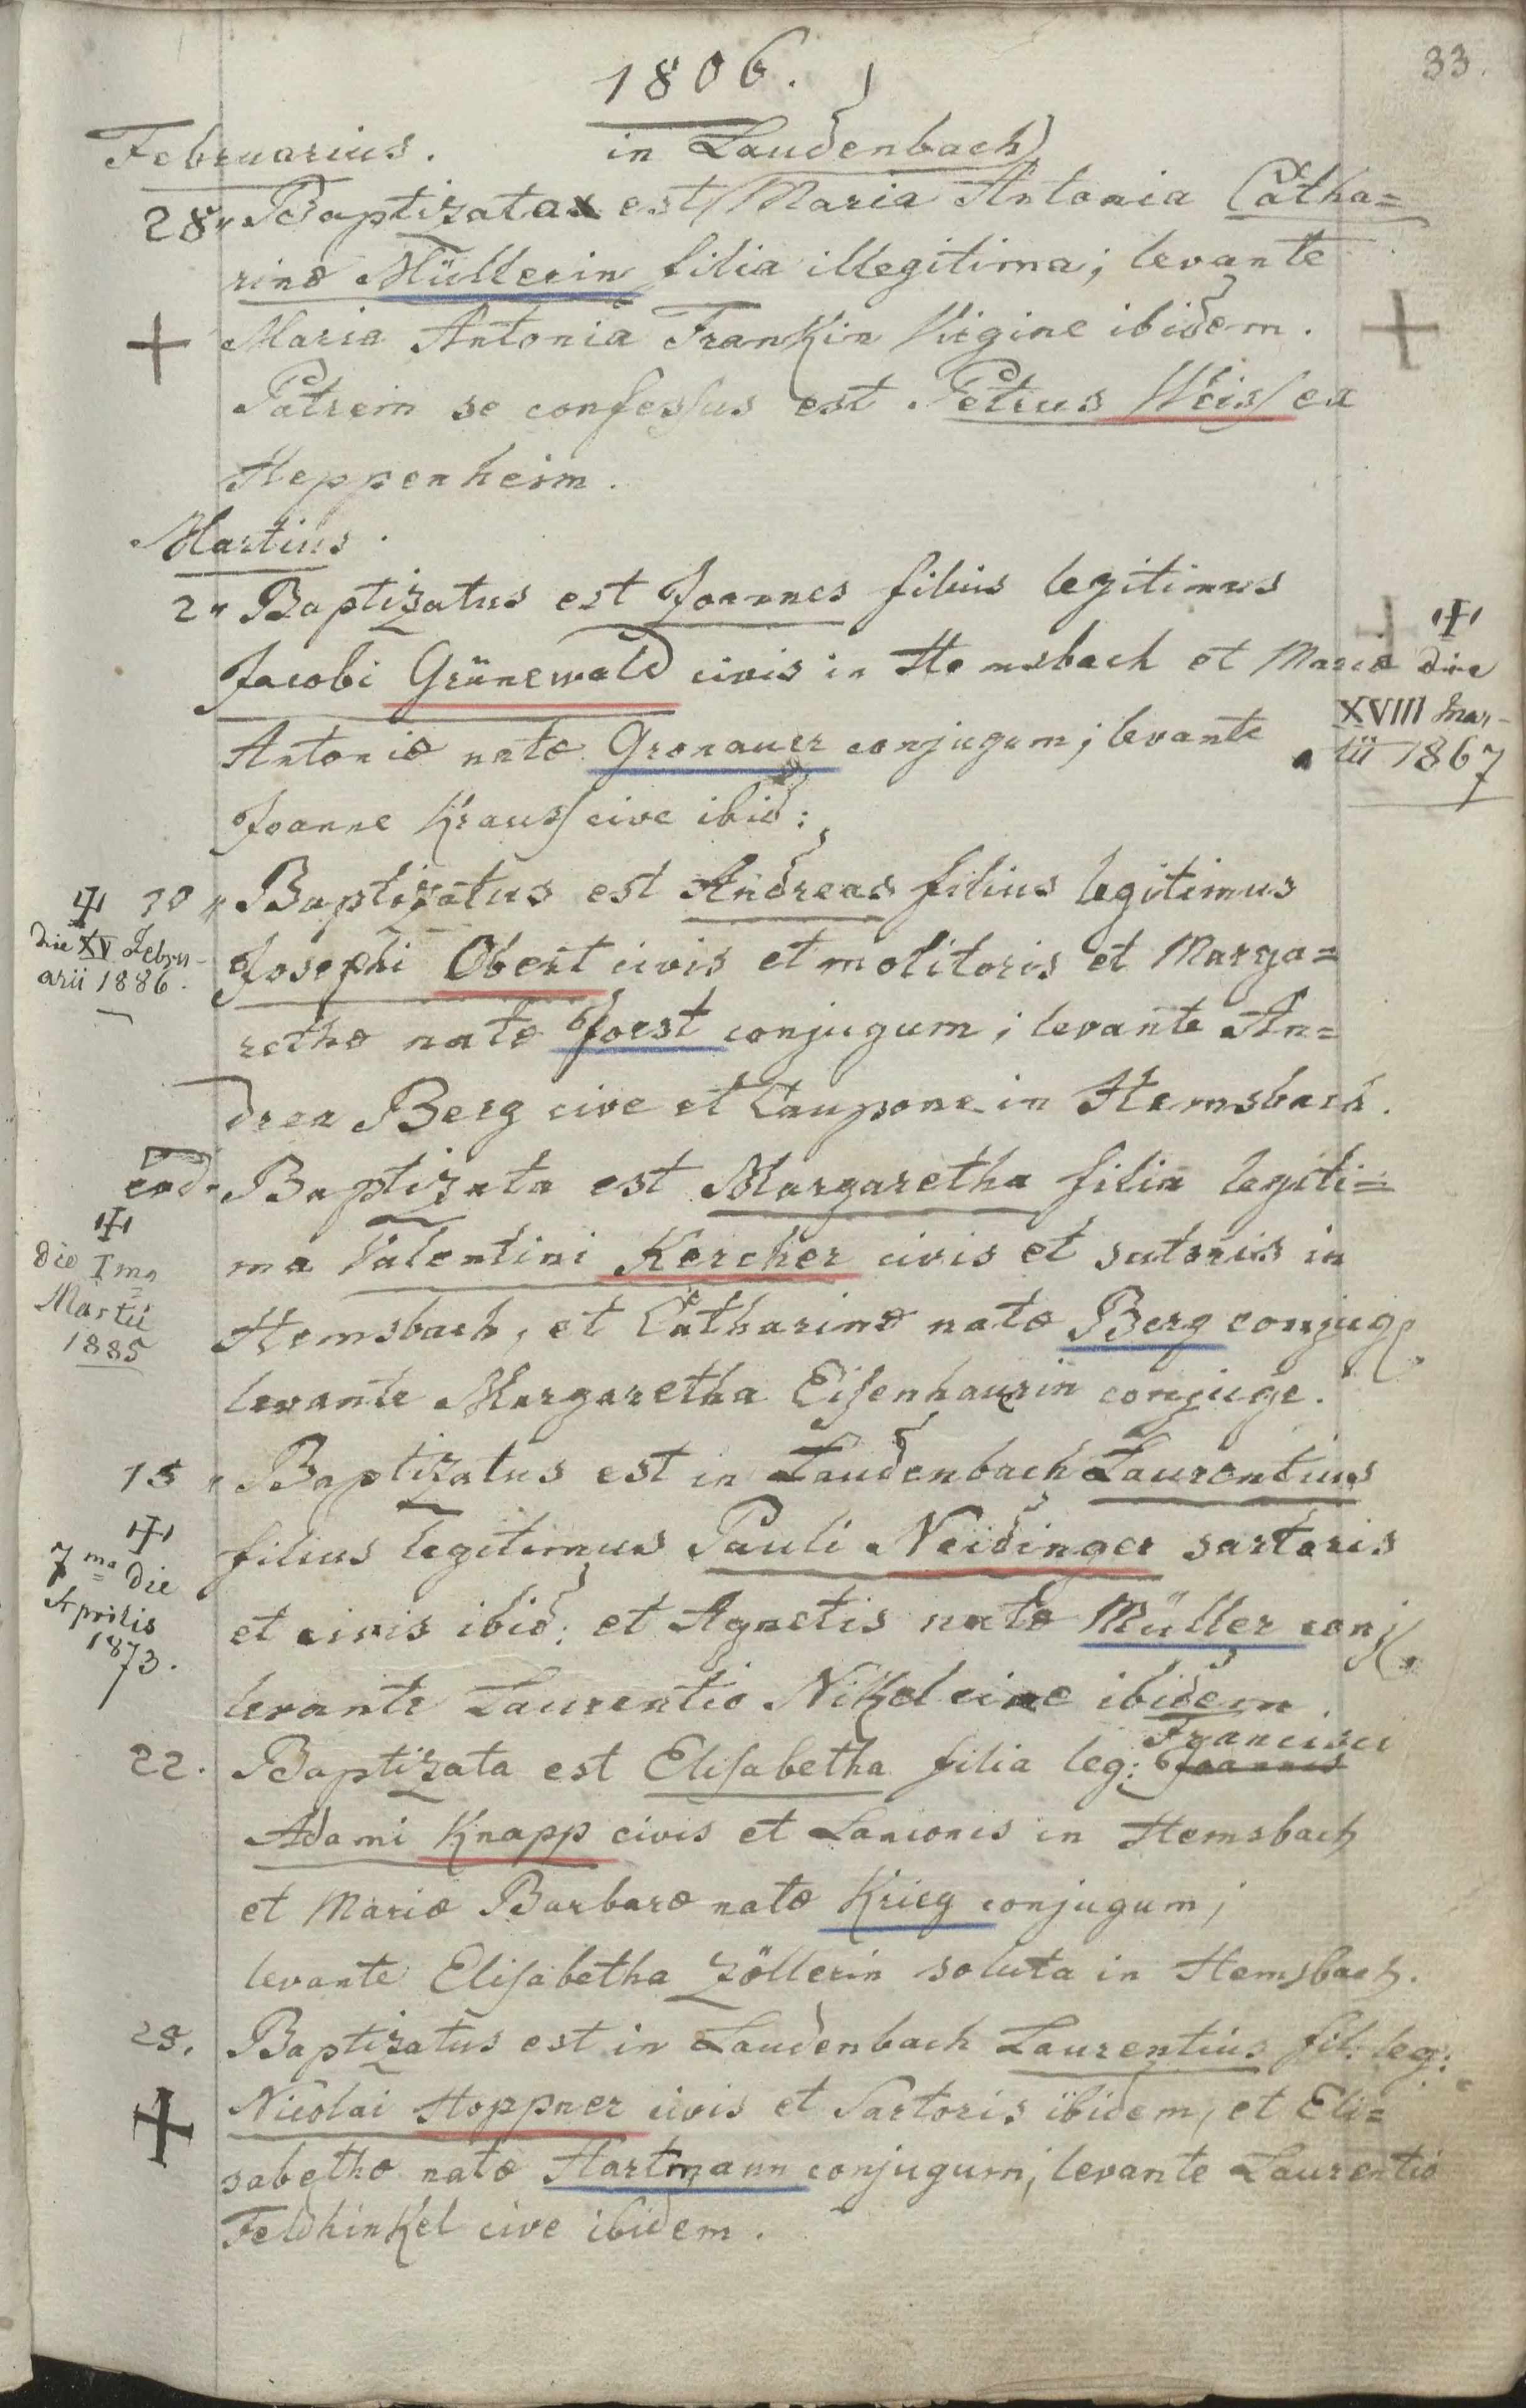 33.
1806.
Februarius. in Laudenbach
28. Baptizata est Maria Antonia Catha=
rinæ Müllerin filia illegitima; levante
Maria Antonia Frankin Virgine ibidem.
Patrem se confessus est Petrus Weiss ex
Heppenheim.
Martius.
2. Baptizatus est Joannes filius legitimus
Jacobi Grünewald civis in Hemsbach et Mariæ
Antoniæ natæ Gronauer conjugum; levante
Joanne Krauss cive ibid:
die
XVIII Mar-
tii 1867
10 Baptizatus est Andreas filius legitimus
Josephi Obert civis et molitoris et Marga=
rethæ natæ Joest conjugum; levante An=
drea Berg cive et Caupone in Hemsbach.
die XV Febru-
arii 1886.
eod. Baptizata est Margaretha filia legiti=
ma Valentini Kercher civis et sutoris in
Hemsbach, et Catharinæ natæ Berg conjug
levante Margaretha Eisenhaurin conjuge.
die Ima
Martii
1885
15 Baptizatus est in Laudenbach Laurentius
filius legitimus Pauli Neidinger sartoris
et civis ibid: et Agnetis natæ Müller conj
levante Laurentio Nikel cive ibidem
7ma die
Aprilis
1873.
22. Baptizata est Elisabetha filia leg: Joannis Francisci
Adami Knapp civis et Lanionis in Hemsbach
et Mariæ Barbaræ natæ Krieg conjugum;
levante Elisabetha Zöllerin soluta in Hemsbach.
28. Baptizatus est in Laudenbach Laurentius fil: leg:
Nicolai Hoppner civis et Sartoris ibidem, et Eli=
sabethæ natæ Hartmann conjugum, levante Laurentio
Feldhinkel cive ibidem.